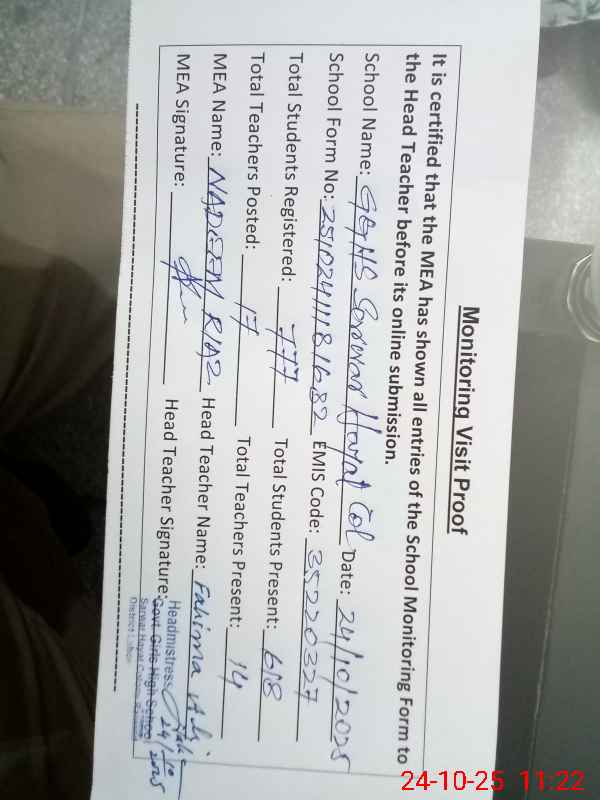 Monitoring Visit Proof
It is certified that the MEA has shown all entries of the School Monitoring Form to
the Head Teacher before its online submission.
School Name: GGHS Sarwar Hayat Col Date: 24/10/2025
School Form No: EMIS Code: 35220327
Total Students Registered: 777 Total Students Present: 618
Total Teachers Posted: 17 Total Teachers Present: 14
MEA Name: NADEEM RIAZ Head Teacher Name: Fahima Ali
MEA Signature: Head Teacher Signature:
Headmistress
Govt. Girls High School
Sarwar Hayat Colony
District Lahore
24/10/2025
24-10-25 11:22